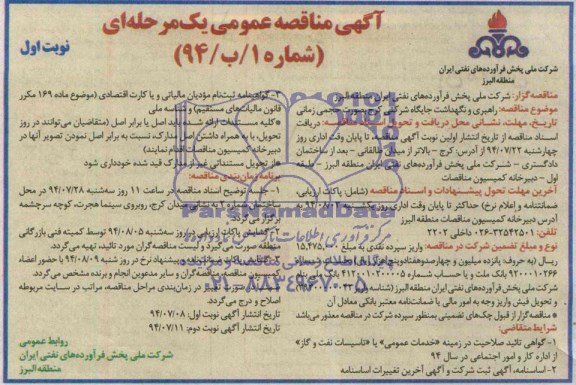 آگهی مناقصه عمومی یک‌مرحله‌ای
(شماره ۱/ب/۹۴)
نوبت اول
شرکت ملی پخش فرآورده‌های نفتی ایران
منطقه البرز
مناقصه‌گزار: شرکت ملی پخش فرآورده‌های نفتی ایران منطقه البرز
موضوع مناقصه: راهبری و نگهداشت جایگاه شرکتی کرج بصورت حجمی زمانی
تاریخ، مهلت، نشانی محل دریافت و تحویل اسناد مناقصه: دریافت
اسناد مناقصه از تاریخ انتشار اولین نوبت آگهی مناقصه، تا پایان وقت اداری روز
چهارشنبه ۹۴/۰۷/۲۲ از آدرس: کرج - بالاتر از میدان طالقانی - بعد از ساختمان
دادگستری - شرکت ملی پخش فرآورده‌های نفتی ایران منطقه البرز - طبقه
اول - دبیرخانه کمیسیون مناقصات
آخرین مهلت تحویل پیشنهادات و اسناد مناقصه (شامل، پاکات ارزیابی،
ضمانتنامه و اعلام نرخ) حداکثر تا پایان وقت اداری روز یکشنبه ۹۴/۰۸/۰۳ به
آدرس دبیرخانه کمیسیون مناقصات منطقه البرز
تلفن: ۳۲۵۴۲۵۰۱-۰۲۶ داخلی ۲۲۰۲
نوع و مبلغ تضمین شرکت در مناقصه: واریز سپرده نقدی به مبلغ
ریال (به حروف: پانزده میلیون و چهارصد و هفتاد و پنج
بانک ملت و یا حساب شماره
شرکت ملی پخش فرآورده‌های نفتی ایران منطقه البرز (شناسه واریز
و تحویل فیش واریز وجه به امور مالی یا ضمانت‌نامه معتبر بانکی معادل آن
*مناقصه‌گزار از قبول چک‌های تضمینی بمنظور سپرده شرکت در مناقصه معذور می‌باشد
شرایط متقاضی:
۱-گواهی تائید صلاحیت در زمینه «خدمات عمومی» یا «تاسیسات نفت و گاز»
از اداره کار و امور اجتماعی در سال ۹۴
۲-اساسنامه، آگهی ثبت و آگهی آخرین تغییرات اساسنامه
۳-گواهینامه ثبت‌نام مؤدیان مالیاتی و یا کارت اقتصادی (موضوع ماده ۱۶۹ مکرر
قانون مالیات‌های مستقیم) و شناسه ملی
*کلیه مستندات ارائه شده باید اصل یا برابر اصل (متقاضیان می‌توانند در روز
تحویل، با به همراه داشتن اصل مدارک، نسبت به برابر اصل نمودن تصویر آنها در
دبیرخانه کمیسیون مناقصات اقدام نمایند)
*از تحویل مستنداتی غیر از مدارک قید شده خودداری شود
برنامه زمان‌بندی مناقصه:
۱- جلسه توضیح اسناد مناقصه در ساعت ۱۱ روز سه‌شنبه ۹۴/۰۷/۲۸ در محل
ساختمان شماره ۲ به نشانی میدان کرج، روبروی سینما هجرت، کوچه سرچشمه
برگزار می‌گردد
۲- گشایش پاکات ارزیابی در روز سه‌شنبه ۹۴/۰۸/۰۵ توسط کمیته فنی بازرگانی
منطقه صورت می‌گیرد و لیست مناقصه‌گران مورد تائید، تهیه می‌گردد.
پیشنهاد نرخ در روز شنبه ۹۴/۰۸/۰۹ با حضور اعضاء
کمیسیون مناقصه، مناقصه‌گران و سایر مدعوین انجام و برنده مشخص می‌گردد.
در زمان‌بندی مراحل مناقصه، مراتب در سایت مربوطه
اصلاح و درج می‌گردد.
تاریخ انتشار آگهی نوبت اول: ۹۴/۰۷/۰۸
تاریخ انتشار آگهی نوبت دوم: ۹۴/۰۷/۱۱
روابط عمومی
شرکت ملی پخش فرآورده‌های نفتی ایران
منطقه البرز
ParsNamadData
۰۲۱-۸۸۳۴۹۶۷۰-۵